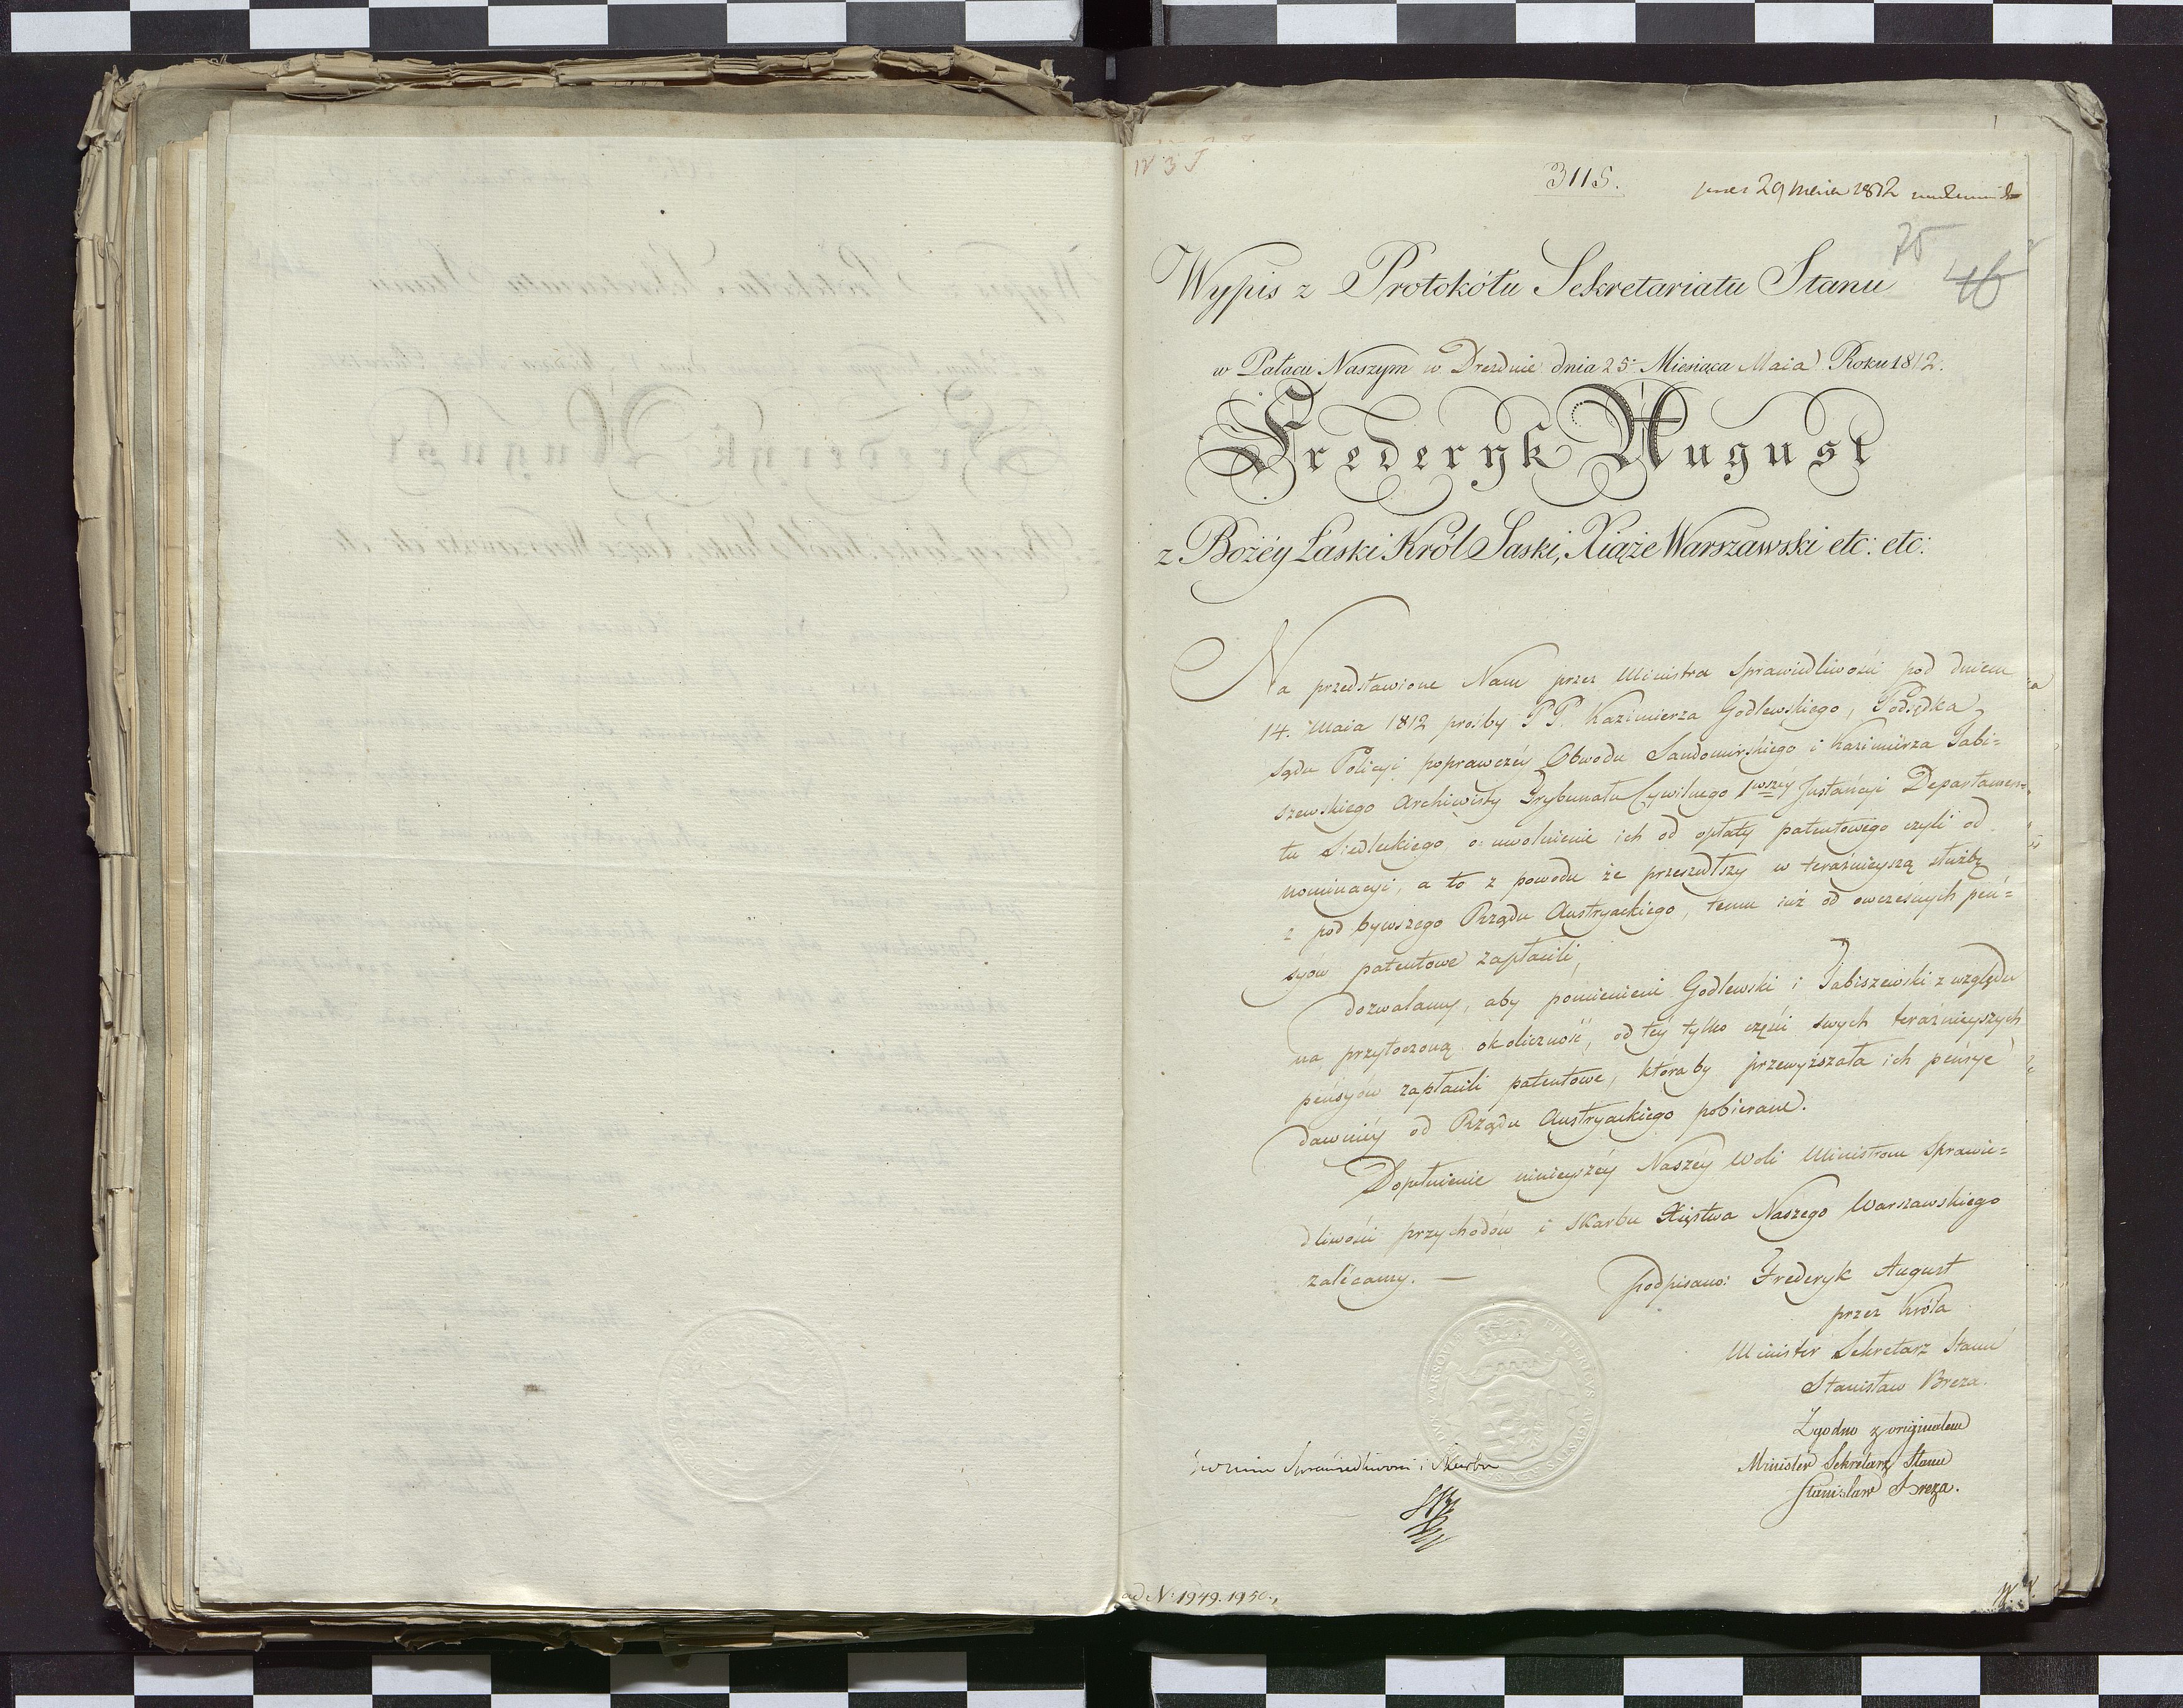 3115.
29 1812
75
46
Wypis z Protokółu Sekretariatu Stanu
w Pałacu Naszym w Dreznie dnia 25 Miesiąca Maia Roku 1812.
Frederyk August
z Bożéy Łaski Król Saski, Xiąże Warszawski etc: etc:
Na przedstawione Nam przez Ministra Sprawiedliwości pod dniem
14. Maia 1812 prośby PP. Kazimierza Godlewskiego, Podsędka
Sądu Policyi poprawczéy Obwodu Sandomirskiego i Kazimierza Jabi=
szewskiego Archiwisty Trybunału Cywilnego 1wszéy Instancyi Departamen=
tu Siedleckiego, o uwolnienie ich od opłaty patentowego czyli od
nominacyi, a to z powodu że przeszedłszy w teraźnieyszą służbę
z pod bywszego Rządu Austryackiego, temu iuż od owczesnych pen=
syów patentowe zapłacili,
dozwalamy, aby pomienieni Godlewski i Jabiszewski z względu
na przytoczoną okoliczność, od téy tylko części swych teraźnieyszych
pensyów zapłacili patentowe, któraby przewyższała ich pensye
dawniéy od Rządu Austryackiego pobierane.
Dopełnienie ninieyszéy Naszéy Woli Ministrom Sprawie=
dliwości przychodów i Skarbu Xięstwa Naszego Warszawskiego
zalécamy. —
podpisano: Frederyk August
przez Króla
Minister Sekretarz Stanu
Stanisław Breza.
Zgodno z originałem
Minister Sekretarz Stanu
Stanisław Breza.
Sprawiedliwości i Skarbu
ad N: 1949. 1950.